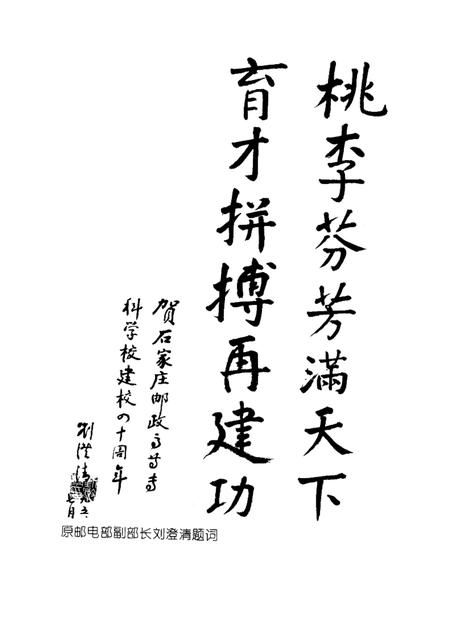 桃李芬芳满天下
育才拼搏再建功
贺石家庄邮政高等专
科学校建校四十周年
刘澄清
九六
七月
原邮电部副部长刘澄清题词